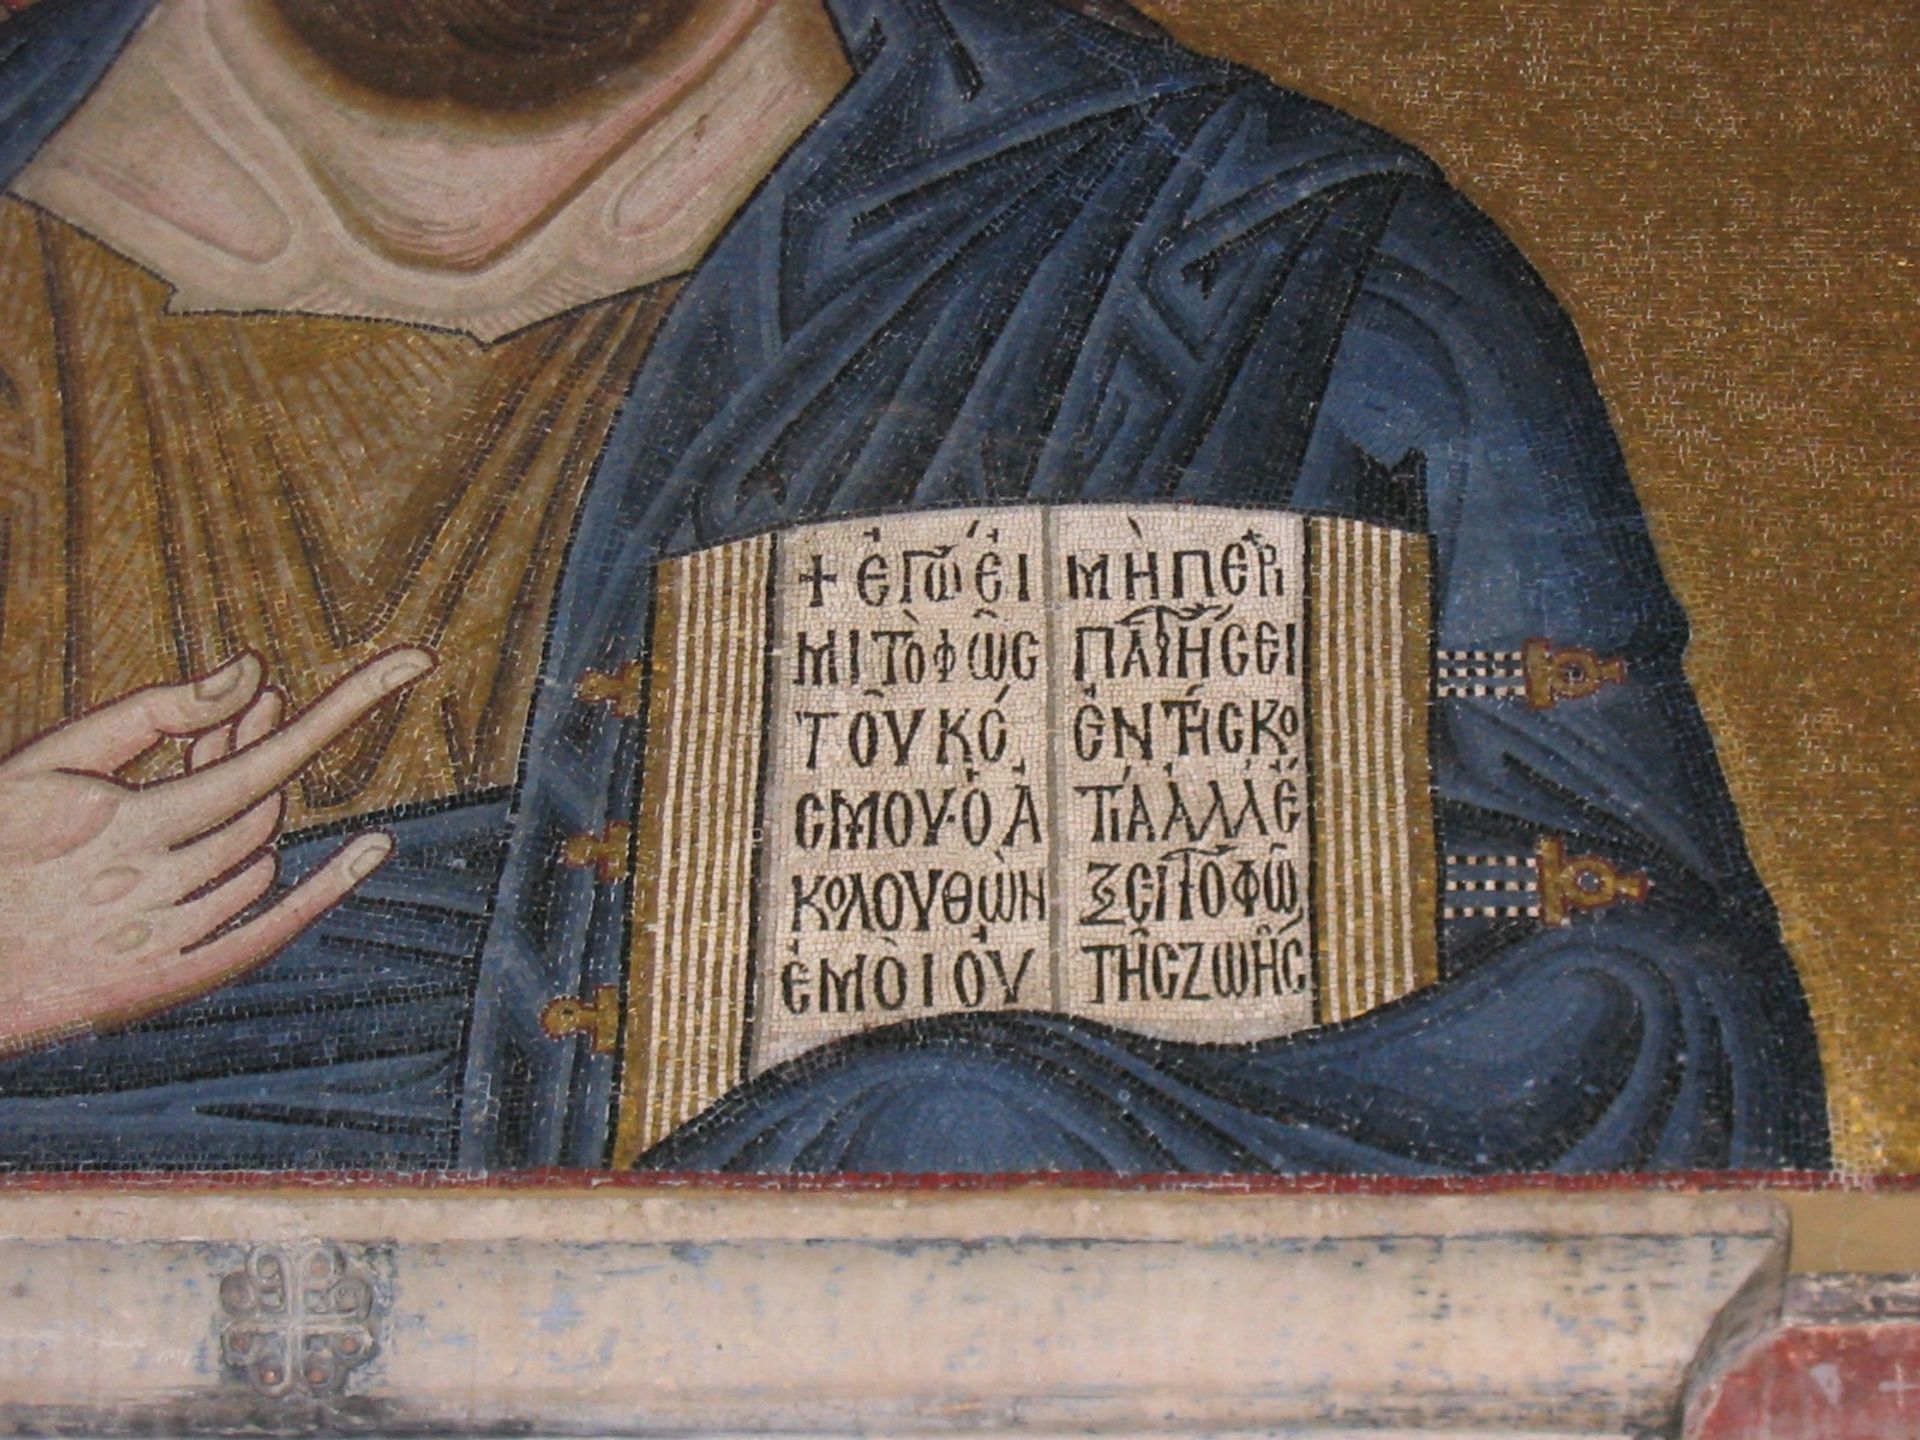 + ἐγὼ εἰ
μὶ τὸ φῶς
τοῦ κό
σμου· ὁ ἀ
κολουθῶν
ἐμοὶ οὐ
μὴ περι
πατήσει
ἐν τῆ σκο
τία ἀλλ' ἕ
ξει τὸ φῶ
τῆς ζωῆς